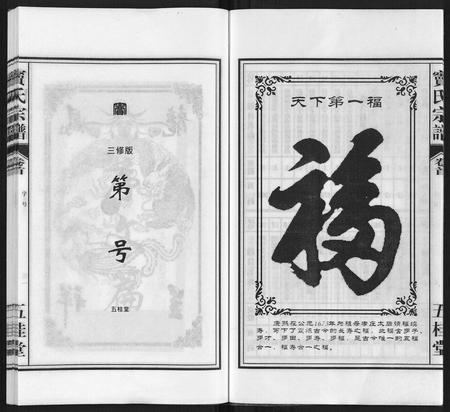 竇氏宗譜
卷首
五桂堂
三修版
第
号
五桂堂
天下第一福
福
康熙在公元1673年为祖母孝庄太后请福续
寿，写下了古今的长寿之福。此福含多子、
多才、多田、多寿、多福，是古今唯一的五福
合一、福寿合一之福。
竇氏宗譜
卷首
五桂堂